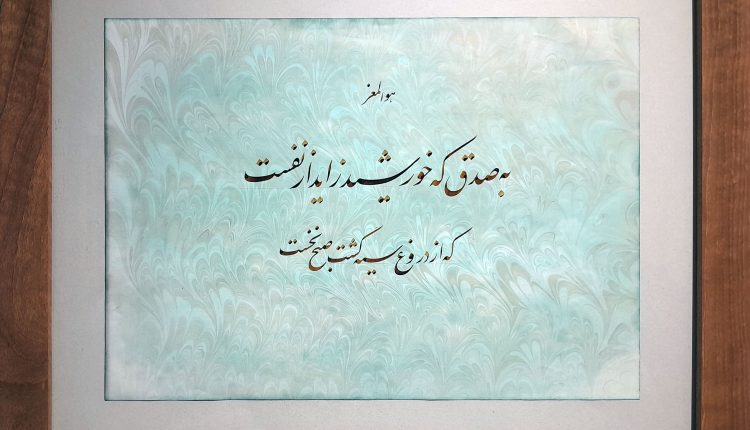 هوالمعز
به صدق کوش که خورشید زاید از نفست
که از دروغ سیه گشت صبح نخست